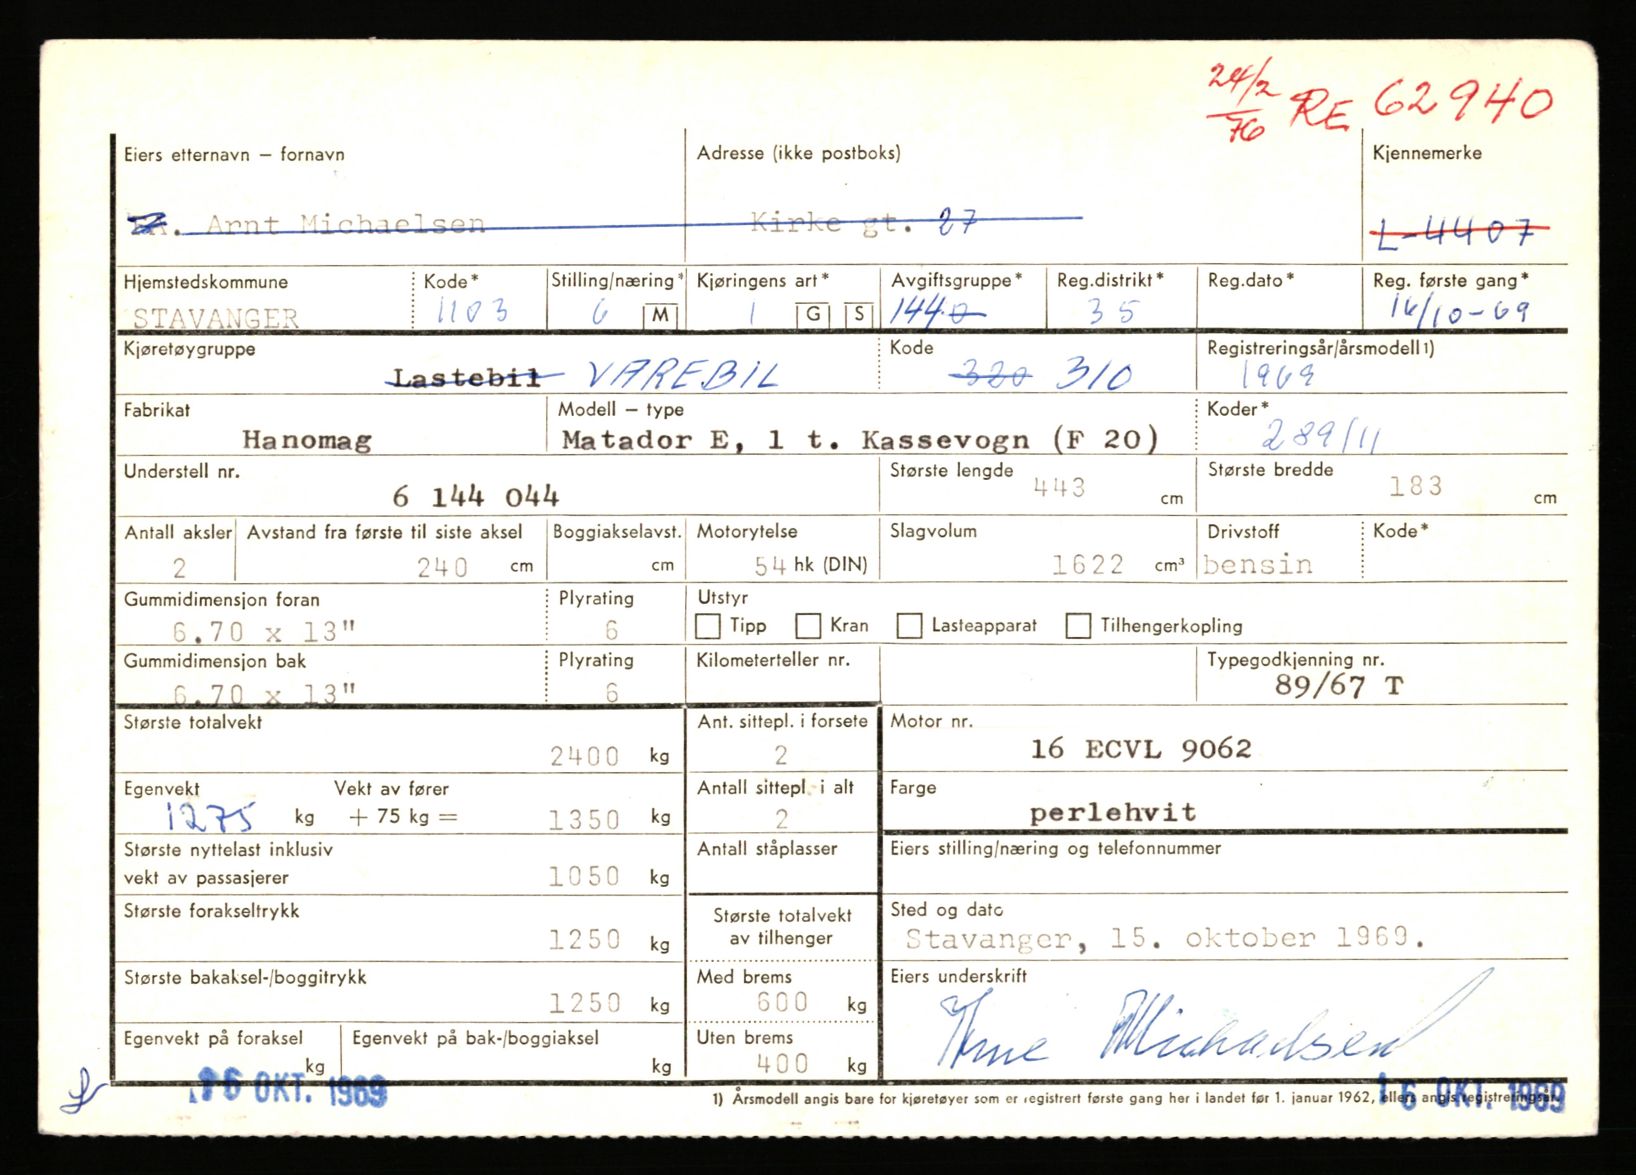 24/2 76 RE 62940
Eiers etternavn – fornavn Adresse (ikke postboks) Kjennemerke
Arnt Michaelsen Kirke gt. 27 L-4407
Hjemstedskommune Kode* Stilling/næring* Kjøringens art* Avgiftsgruppe* Reg.distrikt* Reg.dato* Reg. første gang*
STAVANGER 1103 6 M 1 G S 1440 35 16/10-69
Kjøretøygruppe Kode Registreringsår/årsmodell 1)
Lastebil VAREBIL 320 310 1969
Fabrikat Modell – type Koder*
Hanomag Matador E, 1 t. Kassevogn (F 20) 289/11
Understell nr. Største lengde Største bredde
6 144 044 443 cm 183 cm
Antall aksler Avstand fra første til siste aksel Boggiakselavst. Motorytelse Slagvolum Drivstoff Kode*
2 240 cm cm 54 hk (DIN) 1622 cm³ bensin
Gummidimensjon foran Plyrating Utstyr
6.70 x 13" 6 Tipp Kran Lasteapparat Tilhengerkopling
Gummidimensjon bak Plyrating Kilometerteller nr. Typegodkjenning nr.
6.70 x 13" 6 89/67 T
Største totalvekt Ant. sittepl. i forsete Motor nr.
2400 kg 2 16 ECVL 9062
Egenvekt Vekt av fører Antall sittepl. i alt Farge
1275 kg + 75 kg = 1350 kg 2 perlehvit
Største nyttelast inklusiv Antall ståplasser Eiers stilling/næring og telefonnummer
vekt av passasjerer 1050 kg
Største forakseltrykk Største totalvekt Sted og dato
1250 kg av tilhenger Stavanger, 15. oktober 1969.
Største bakaksel-/boggitrykk Med brems Eiers underskrift
1250 kg 600 kg Arne Michaelsen
Egenvekt på foraksel Egenvekt på bak-/boggiaksel Uten brems
kg kg 400 kg
16 OKT. 1969 16 OKT. 1969
1) Årsmodell angis bare for kjøretøyer som er registrert første gang her i landet før 1. januar 1962, ellers angis registreringsår.